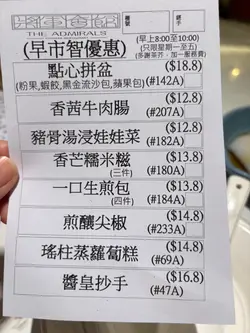 THE ADMIRALS
(早市智優惠)
(早上8:00至10:00)
(只限星期一至五)
點心拼盆 ($18.8)
(粉果,蝦餃,黑金流沙包,蘋果包) (#142A)
香茜牛肉腸 ($12.8)
(#207A)
豬骨湯浸娃娃菜 ($12.8)
(#182A)
香芒糯米糍 ($13.8)
(三件) (#180A)
一口生煎包 ($13.8)
(四件) (#184A)
煎釀尖椒 ($14.8)
(#233A)
瑤柱蒸蘿蔔糕 ($14.8)
(#69A)
醬皇抄手 ($16.8)
(#47A)